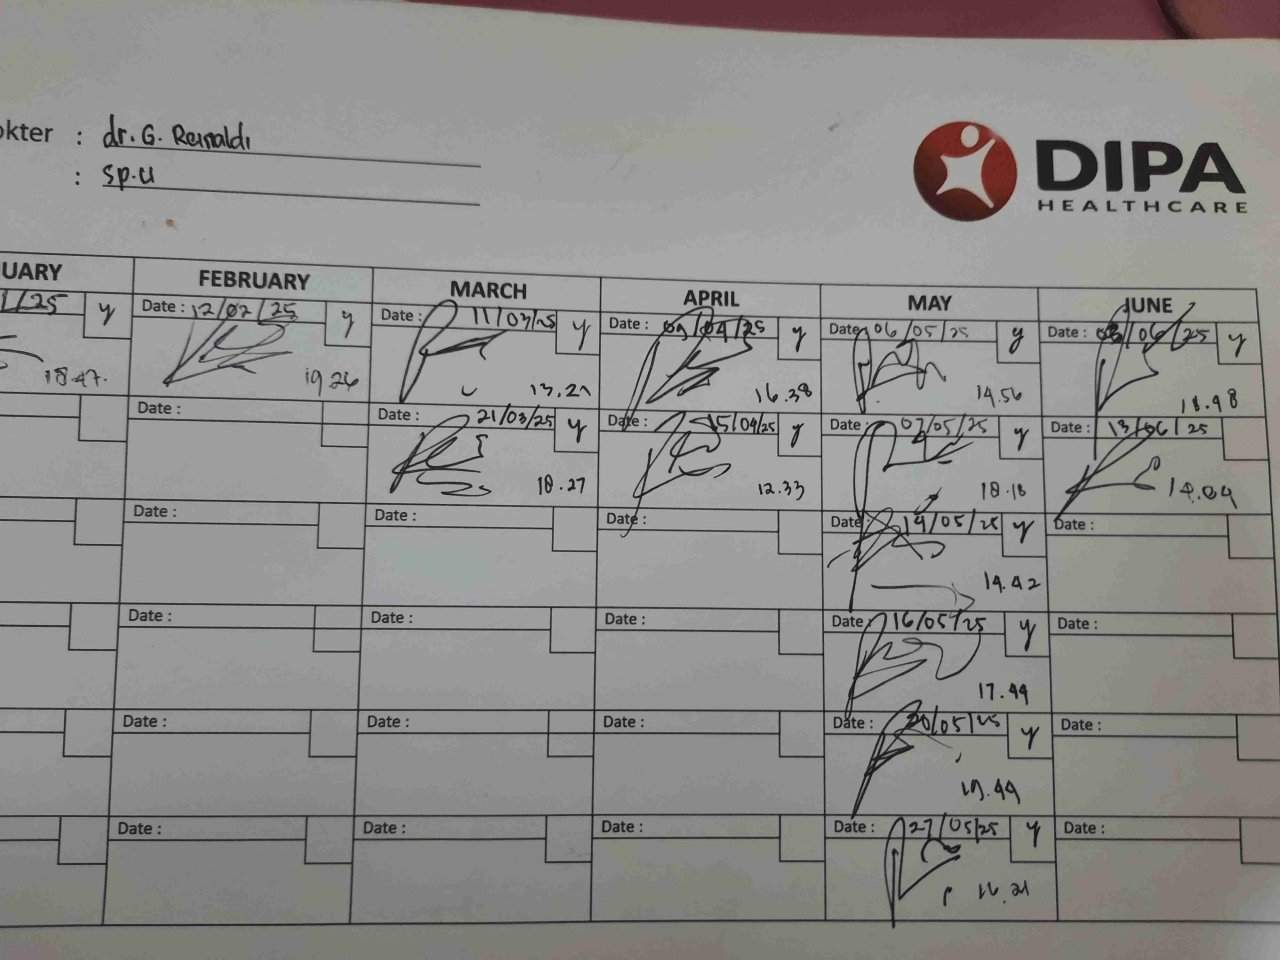 okter : dr. G. Reinaldi
: Sp.U
DIPA
HEALTHCARE
UARY FEBRUARY MARCH APRIL MAY JUNE
1/25 y Date : 12/02/25 y Date : 11/03/25 y Date : 09/04/25 y Date : 06/05/25 y Date : 03/06/25 y
18.47. 19.26 13.21 16.38 14.56 18.48
Date : Date : 21/03/25 y Date : 15/04/25 y Date : 07/05/25 y Date : 13/06/25
18.27 12.33 18.18 14.04
Date : Date : Date : Date : 14/05/25 y Date :
14.42
Date : Date : Date : Date : 16/05/25 y Date :
17.44
Date : Date : Date : 20/05/25 y Date :
19.44
Date : Date : Date : Date : 27/05/25 y Date :
16.21